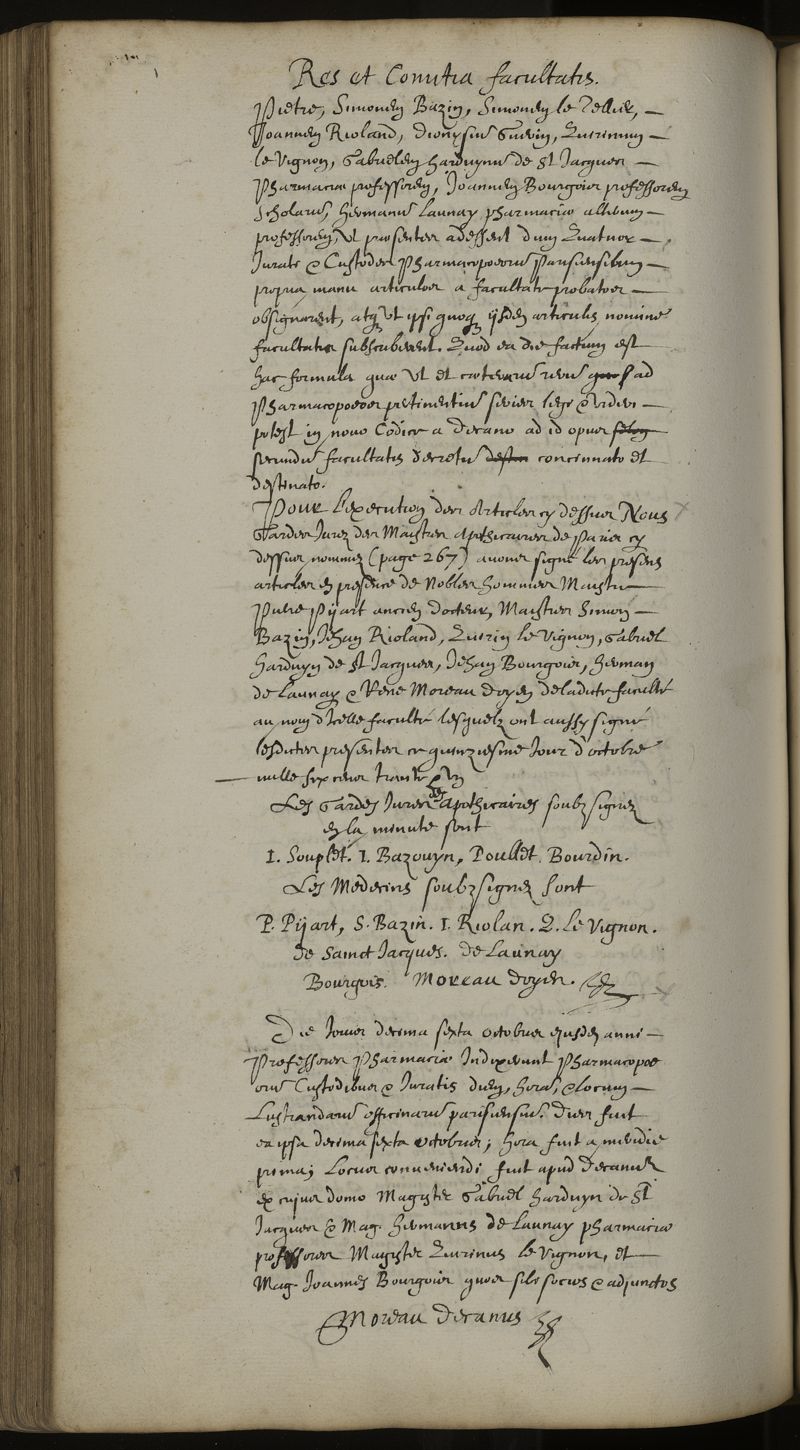 Res et Comitia facultatis.
Pietre, Simonem Bazin, Simonem le Tellier, —
Joannem Rioland, Dionysiu Guerin, Quirinum —
le Vignon, Gabrielem Harduynu de St Jacques —
Pharmaciæ professorem, Joannem Bourgois professorem
Scholaru, Hermanu Launay pharmaciæ alterum —
professorem, ut præsentes adessent dum Quatuor —
Jurati & Custodes Pharmacopoeoru Parisiensium —
propria manu articulos a facultate probatos —
obsignarent, atq ut ipsi quoq ijsdem articulis nomine
facultatis subscriberent. Quod ea die factum est
hac formula quæ ut et cæteraru reru ad
Pharmacopoeos pertinentiu series legi & videri —
potest in novo Codice a decano ad id opus
secundu facultatis decretu concinnato et
destinato.
Pour l'execution des Articles cy dessus Nous
Gardes Jurez des Maistres Apothicaires de Paris cy
dessus nommez (page 267) avons signé les presens
articles en presence de Nobles hommes Maistre —
Pierre Pijart ancien docteur, Maistres Simon —
Bazin, Jehan Rioland, Quirin le Vignon, Gabriel
Harduyn de St Jacques, Jehan Bourgois, Herman
de Launay & René Moreau doyen de ladicte faculté
au nom d'icelle faculté lesquelz ont aussy signé
lesdictes presentes ce quinziesme Jour d'octobre
— mille six cens trente & un
Les Gardes Jurez des Apothicaires soubz signez
en la minute sont
I. Souplet. I. Bazouyn, Poullet. Bourdin.
Les Medecins soubzsignez sont
P. Pijart, S. Bazin. I. Riolan. Q. Le Vignon.
de Sainct Jacques. de Launay
Bourgois. Moreau doyen.
Die Jovis decima sexta octobris ejusdem anni —
Professores Pharmaciæ Indixerunt Pharmacopoe
oru Custodibus & Juratis diem, hora, & locum —
Lustrandaru officinaru parisiensiu. dies fuit
ea ipsa decima sexta octobris; hora fuit a meridie
prima; Locus conveniendi fuit apud decanu
ex cujus domo Magister Gabriel Harduyn de St
Jacques & Mag. Hermanns de Launay pharmaciæ
professores Magister Quirinus le Vignon, et —
Mag. Joannes Bourgois quos sibi socios & adjunctos
Moreau decanus